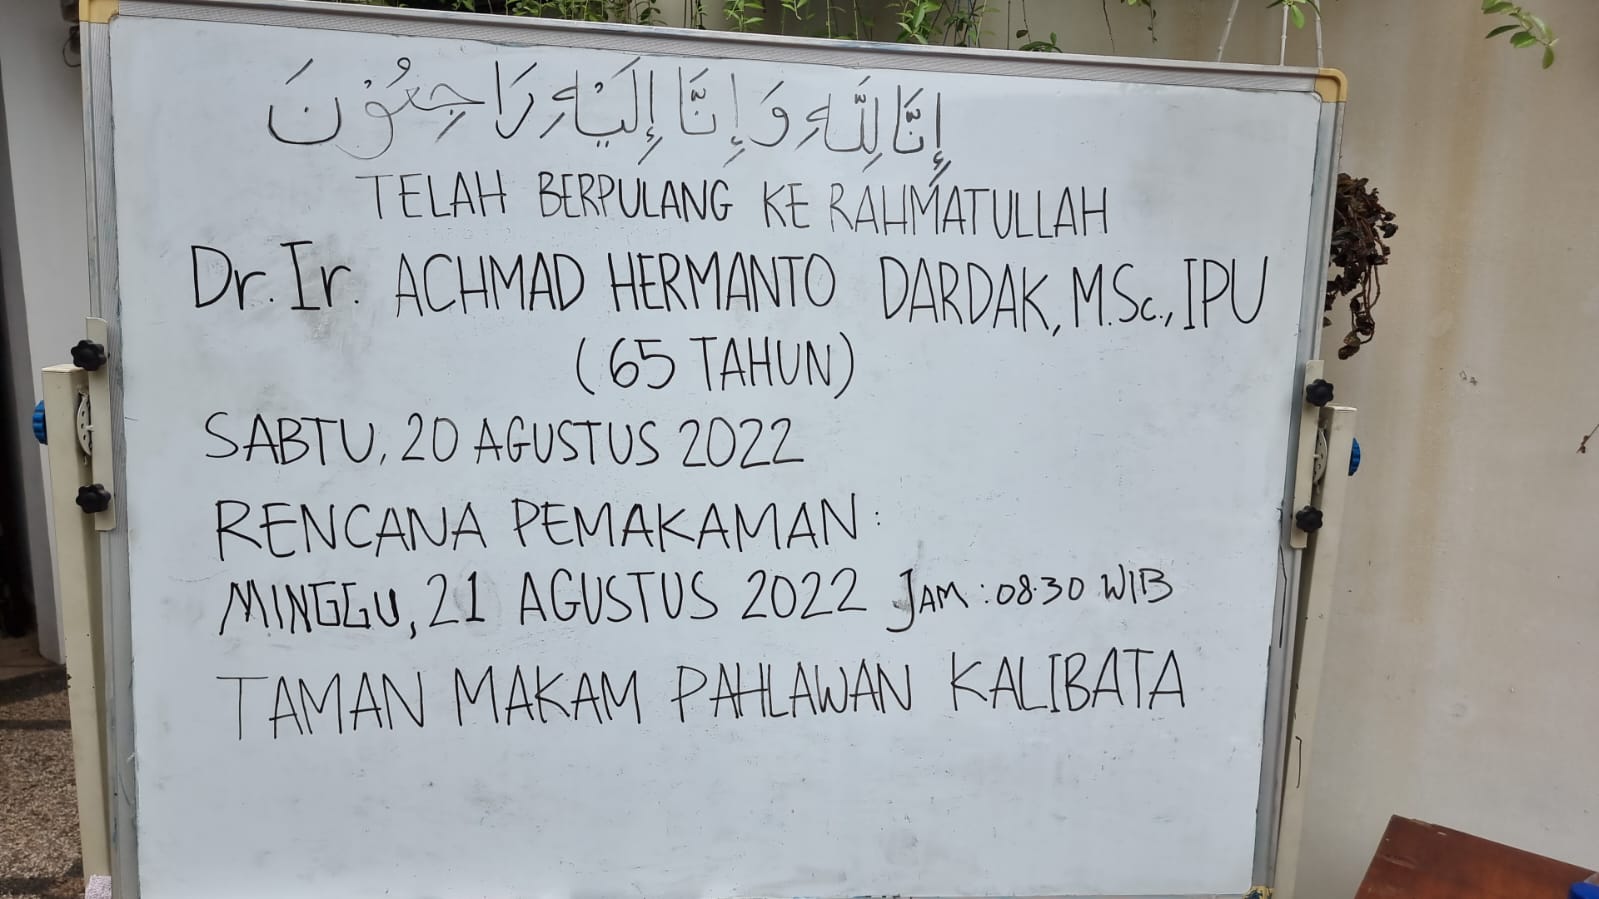 إِنَّا لِلَّهِ وَإِنَّا إِلَيْهِ رَاجِعُوْنَ
TELAH BERPULANG KE RAHMATULLAH
Dr. Ir. ACHMAD HERMANTO DARDAK, M.Sc., IPU
(65 TAHUN)
SABTU, 20 AGUSTUS 2022
RENCANA PEMAKAMAN:
MINGGU, 21 AGUSTUS 2022 JAM : 08.30 WIB
TAMAN MAKAM PAHLAWAN KALIBATA